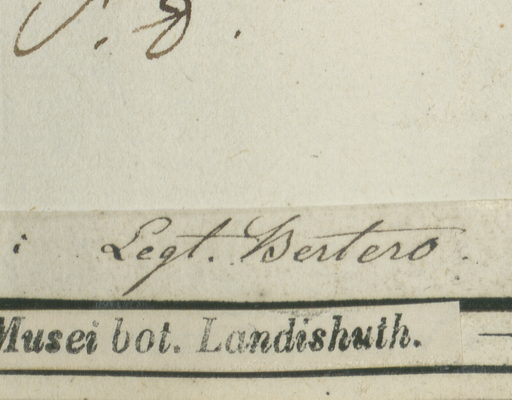 i Legt. Bertero.
Musei bot. Landishuth.